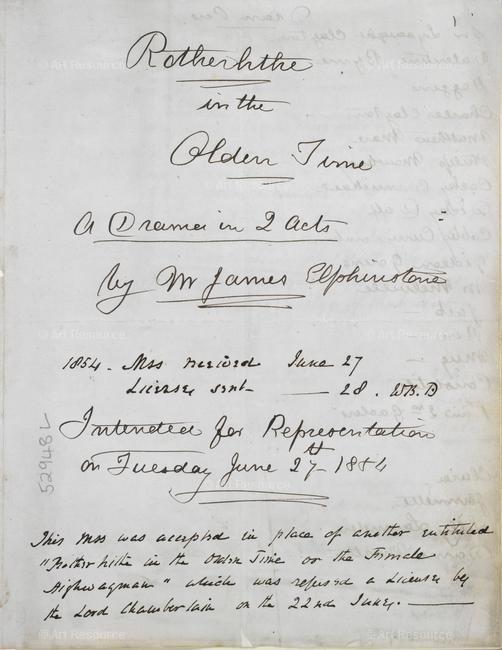 Rotherhithe
in the
Olden Time
A Drama in 2 Acts
by Mr James Elphinstone
1854. Mss received June 27
License sent — 28. WB.D
Intended for Representation
on Tuesday June 27th 1854
This Mss was accepted in place of another entituled
"Rotherhithe in the Olden Time or the Female
Highwayman" which was refused a License by
the Lord Chamberlain on the 22nd June. —
52948 L
© Art Resource